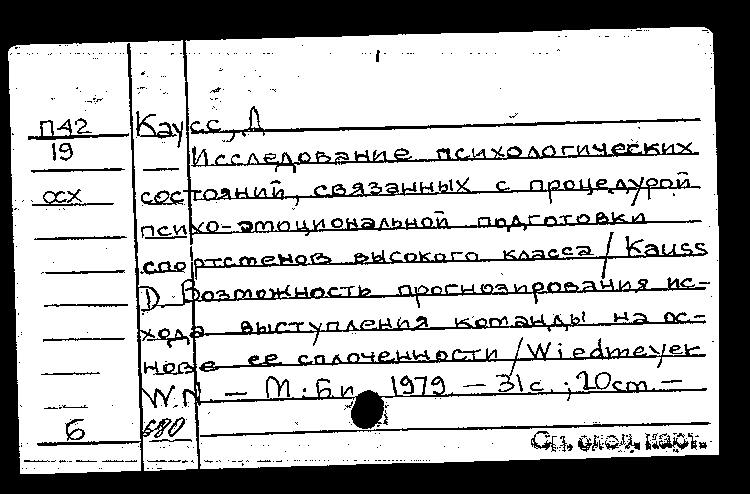 П42 Каусс, Д
19 Исследование психологических
осх состояний, связанных с процедурой
психо-эмоциональной подготовки
спортсменов высокого класса / Kauss
D. Возможность прогнозирования ис-
хода выступления команды на ос-
нове ее сплоченности / Wiedmeyer
W.N - М.: Би, 1979. - 31с.; 20cm. -
Б 680